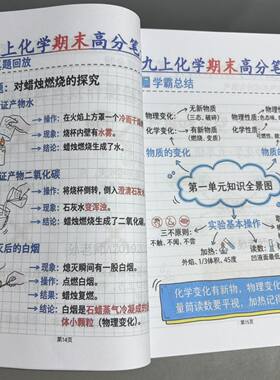 九上化学期末高分笔
题回放
题：对蜡烛燃烧的探究
证产物水
操作：在火焰上方罩一个冷而干
现象：烧杯内壁有水雾。
结论：蜡烛燃烧生成了水。
证产物二氧化碳
操作：将烧杯倒转，倒入澄清石灰
现象：石灰水变浑浊。
结论：蜡烛燃烧生成了二氧化碳
灭后的白烟
现象：熄灭瞬间有一股白烟。
操作：点燃白烟。
结果：蜡烛复燃。
结论：白烟是石蜡蒸气冷凝成的
体小颗粒（物理变化）。
第14页
九上化学期末高分笔
学霸总结
物理变化：
无新物质
（三态、破碎）
化学变化：
有新物质
物理性质：
化学性质：
物质的变化
物质的
第一单元知识全景图
实验基本操作
三不原则：
不触、不闻、不尝
加热：
外焰、1/3体积、45度
读数：
凹液面最低
化学变化有新物，物理变
量筒读数要平视，加热记得
第15页